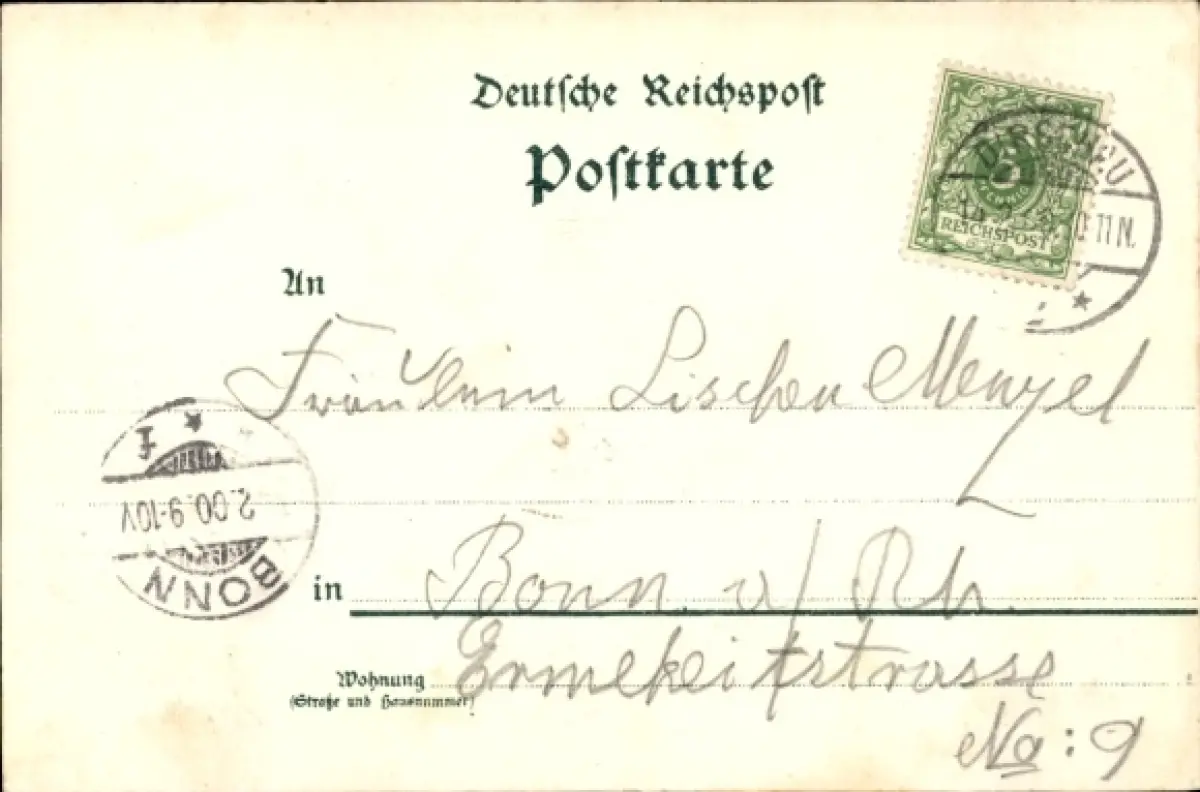 Deutsche Reichspost
Postkarte
5
REICHSPOST
11 N.
An
Fräulein Lischen Menzel
2.00.9-10V
BONN
in Bonn a/Rh.
Wohnung Ermekeilstrasse
(Straße und Hausnummer)
No: 9